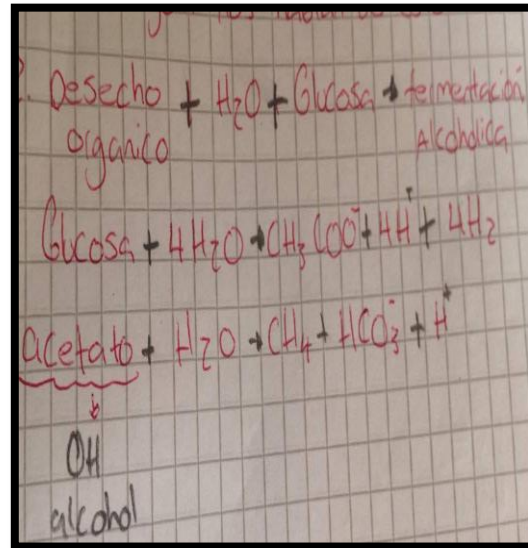 2. Desecho + H₂O + Glucosa → fermentación
orgánico Alcoholica
Glucosa + 4H₂O → CH₃COO⁻ + 4H⁺ + 4H₂
acetato + H₂O → CH₄ + HCO₃⁻ + H⁺
↓
OH
alcohol